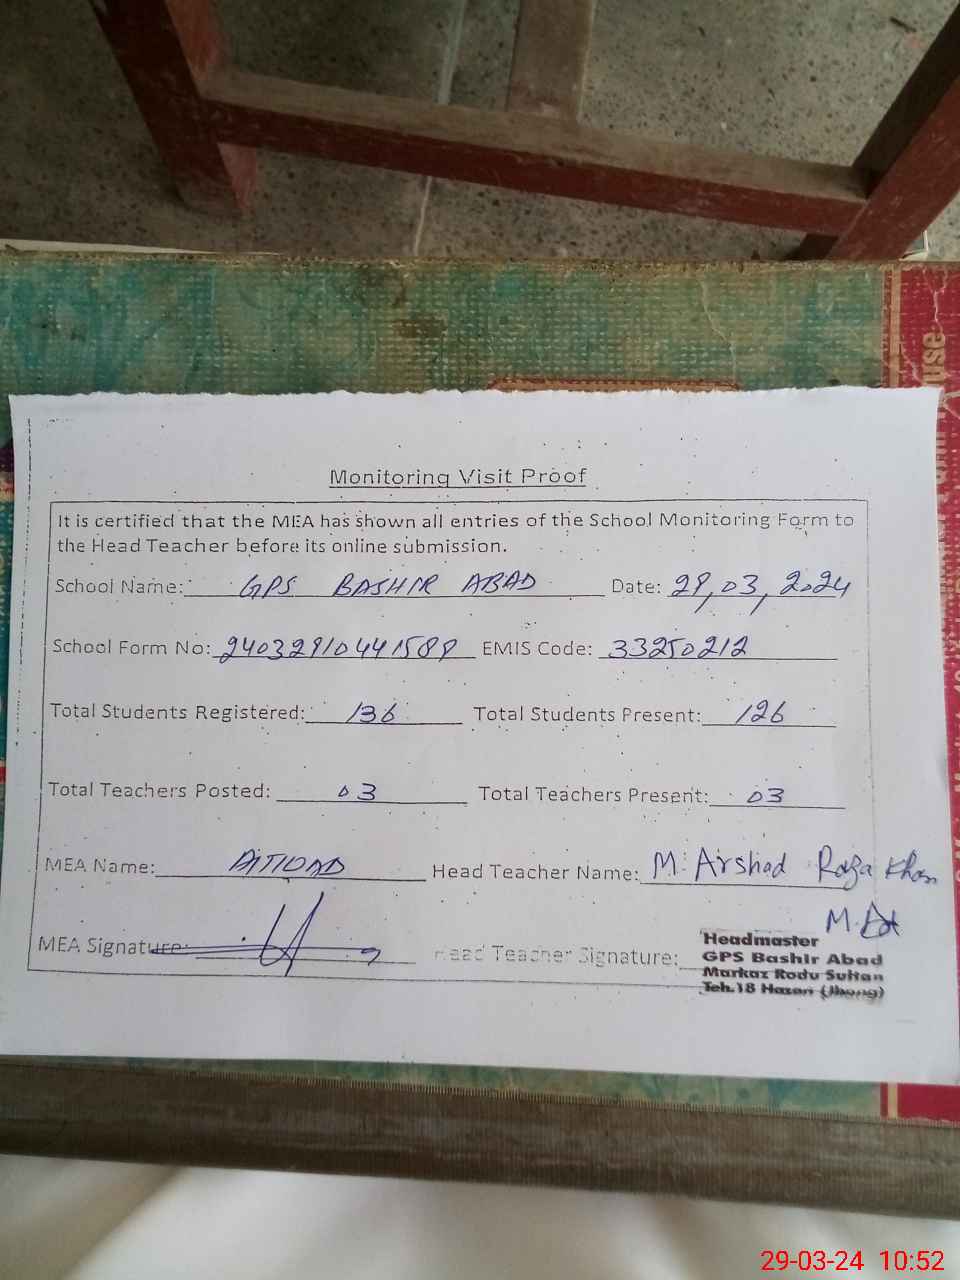 Monitoring Visit Proof
It is certified that the MEA has shown all entries of the School Monitoring Form to
the Head Teacher before its online submission.
School Name: GPS BASHIR ABAD Date: 29,03,2024
School Form No: 24032910441589 EMIS Code: 33250212
Total Students Registered: 136 Total Students Present: 126
Total Teachers Posted: 03 Total Teachers Present: 03
MEA Name: Head Teacher Name: M. Arshad Raza Khan
MEA Signature: Head Teacher Signature:
Headmaster
GPS Bashir Abad
Markaz Rodu Sultan
Teh.18 Hazari (Jhang)
29-03-24 10:52